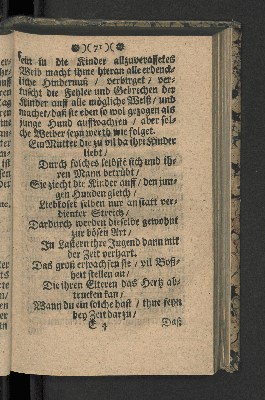 )( 71 )(
sein in die Kinder allzuverassetes
Weib macht ihme hieran alle erdenck-
liche Hindernuß / verbirget / ver-
tuscht die Fehler und Gebrechen der
Kinder auff alle mögliche Weiß / und
machet / daß sie eben so wol gezogen als
junge Hund auffwachsen / aber sol-
che Weiber seyn werth wie folget.
Ein Mutter die zu vil da ihr Kinder
liebt /
Durch solches selbste sich und ih-
ren Mann betrübt /
Sie ziecht die Kinder auff / den jun-
gen Hunden gleich /
Liebkoset selben nur anstatt ver-
dienter Streich /
Dardurch werden dieselbe gewohnt
zur bösen Art /
In Lastern ihr Jugend dann mit
der Zeit verhart.
Das groß erwachsen sie / vil Boß-
heit stellen an /
Die ihren Elteren das Hertz ab-
trucken kan /
Wann du ein solche hast / ihme seyn
bey Zeit darzu /
E 4 Daß